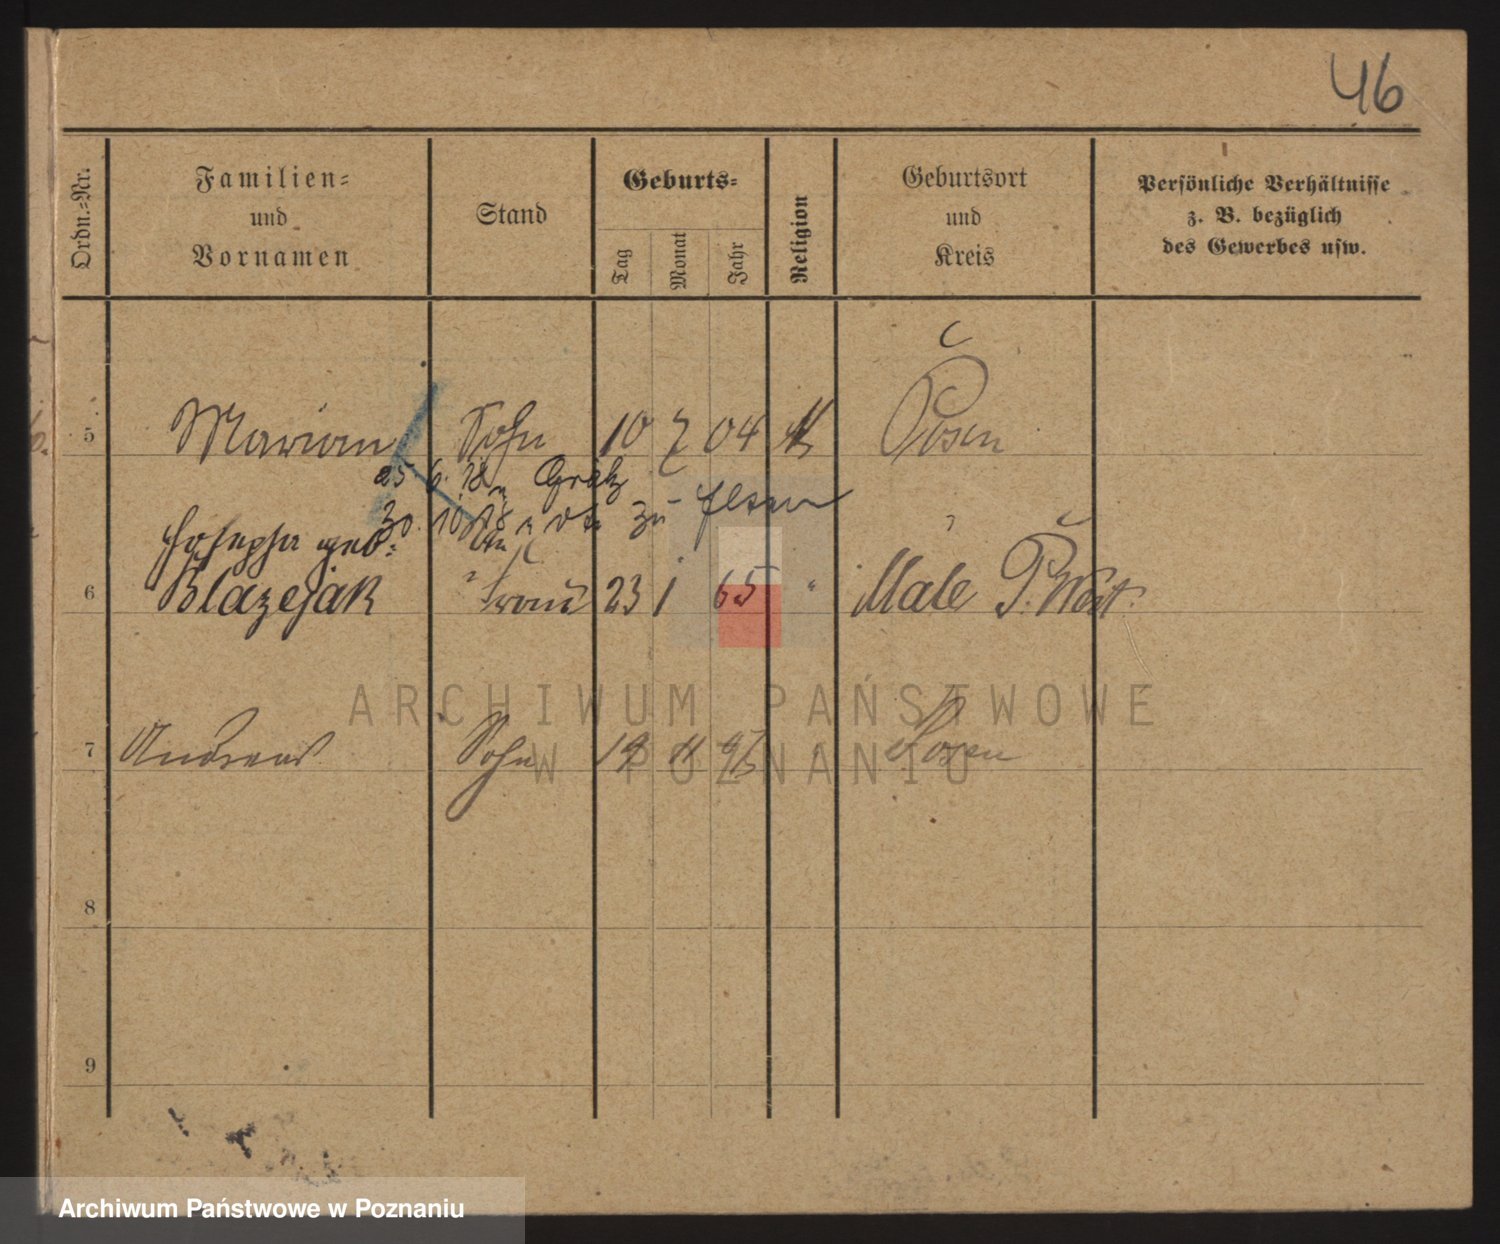 46
Ordn.-Nr.
Familien- und Vornamen
Stand
Geburts-
Tag
Monat
Jahr
Religion
Geburtsort und Kreis
Persönliche Verhältnisse z. B. bezüglich des Gewerbes usw.
5 Marian Sohn 10 7 04 Posen
25 6. 18 n Grätz
30. 10 18 zu
Josepha geb:
6 Blazejak Frau 23 1 65 " Male P. West.
7 Andreas Sohn 11 Posen
8
9
ARCHIWUM PAŃSTWOWE
W POZNANIU
Archiwum Państwowe w Poznaniu